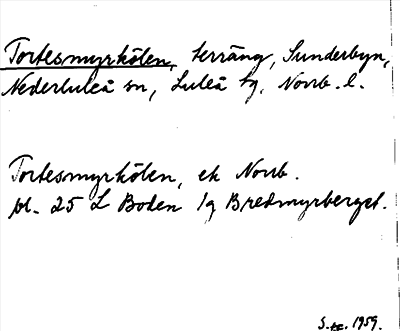 Tortesmyrkölen, terräng, Sunderbyn,
Nederluleå sn, Luleå tg, Norrb. l.
Tortesmyrkölen, ek Norrb.
bl. 25 L Boden lg Bredmyrberget.
1959.